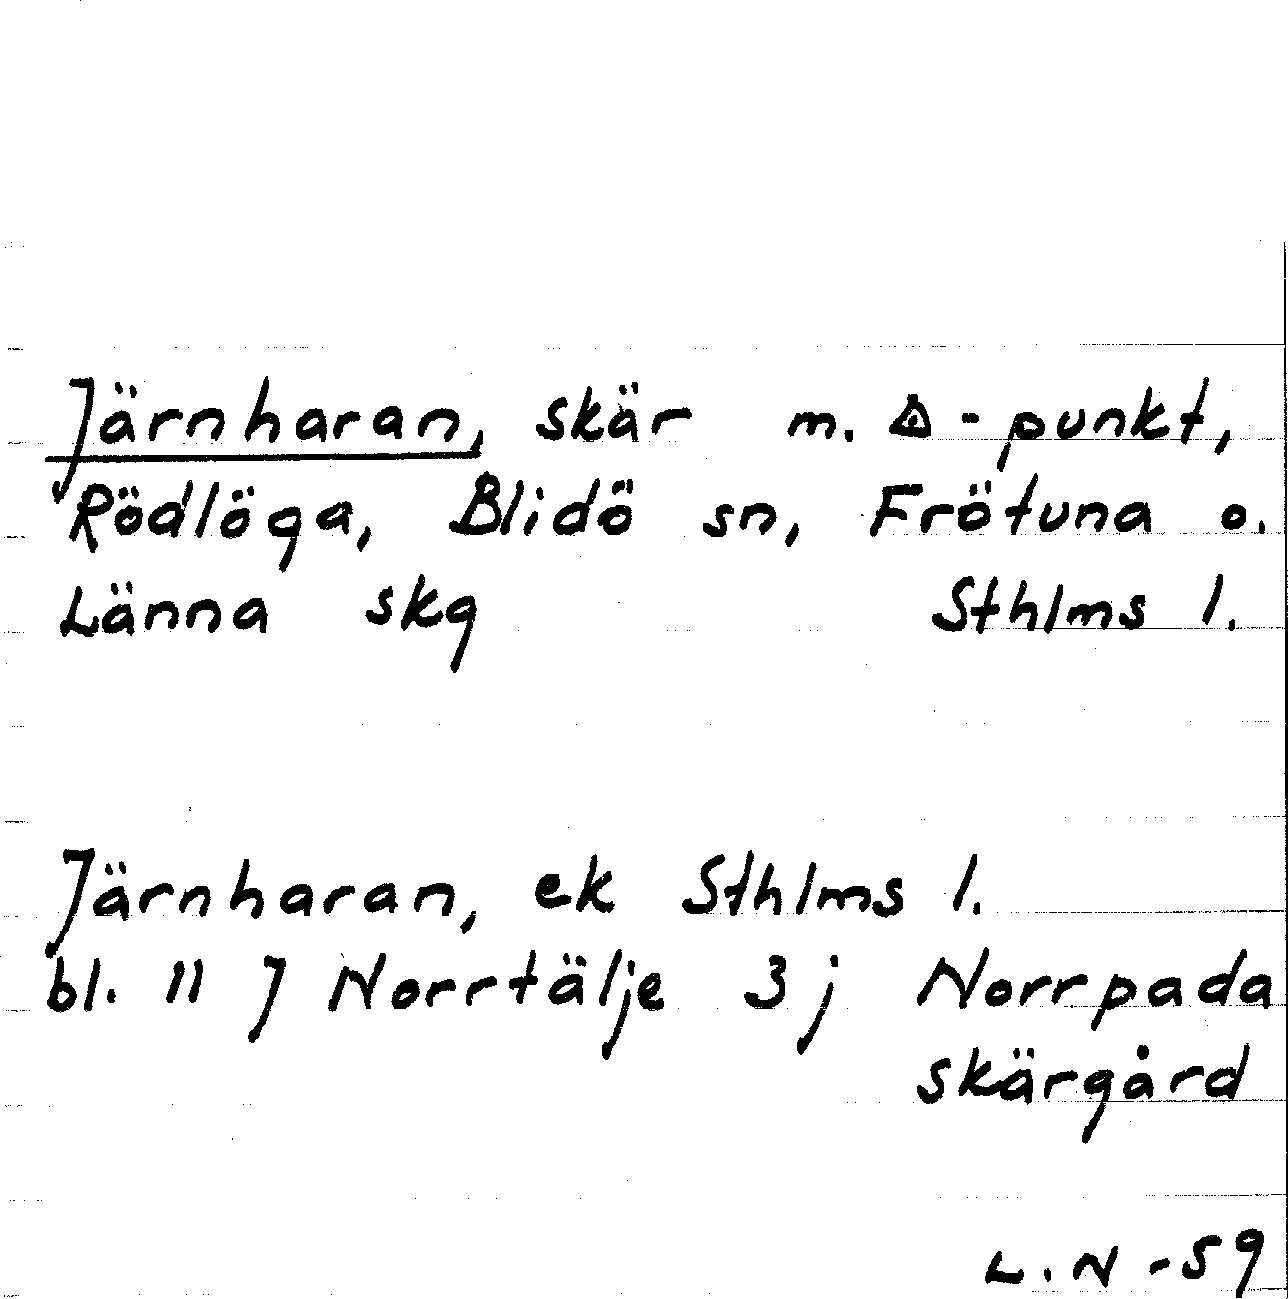 Järnharan, skär m. △-punkt,
Rödlöga, Blidö sn, Frötuna o.
Länna skg Sthlms l.
Järnharan, ek Sthlms l.
bl. 11 J Norrtälje 3 j Norrpada
skärgård
L.N -59